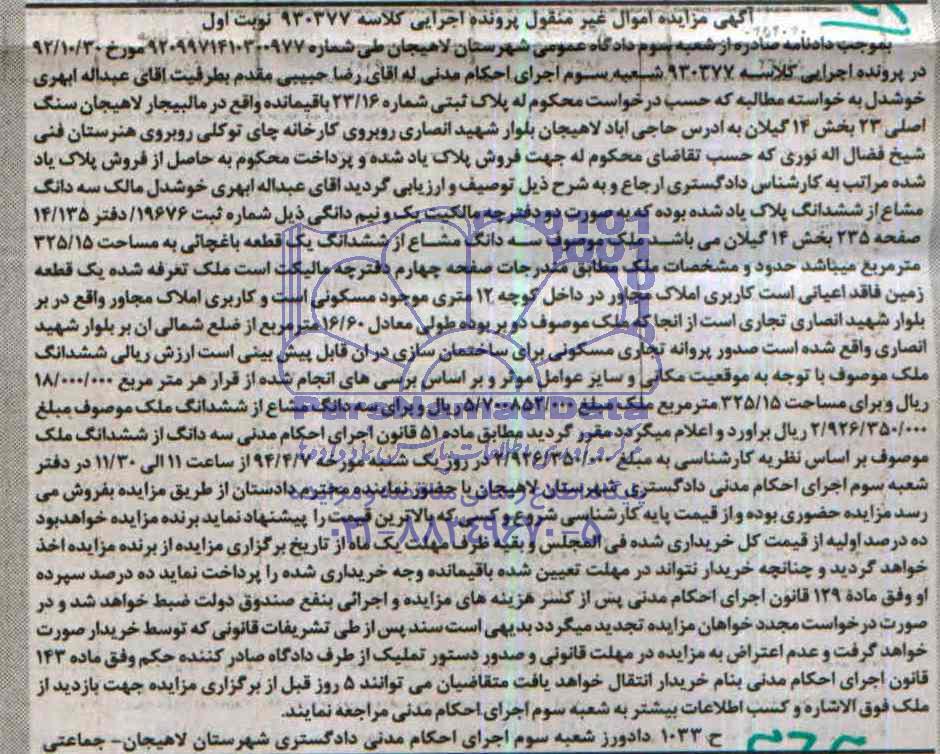 آگهی مزایده اموال غیر منقول پرونده اجرایی کلاسه ۹۳۰۳۷۷ نوبت اول
بموجب دادنامه صادره از شعبه سوم دادگاه عمومی شهرستان لاهیجان طی شماره ۹۲۰۹۹۷۱۴۱۰۳۰۰۹۷۷ مورخ ۹۲/۱۰/۳۰
در پرونده اجرایی کلاسه ۹۳۰۳۷۷ شعبه سوم اجرای احکام مدنی له اقای رضا حبیبی مقدم بطرفیت اقای عبداله ابهری
خوشدل به خواسته مطالبه که حسب درخواست محکوم له پلاک ثبتی شماره ۲۳/۱۶ باقیمانده واقع در مالبیجار لاهیجان سنگ
اصلی ۲۳ بخش ۱۴ گیلان به ادرس حاجی اباد لاهیجان بلوار شهید انصاری روبروی کارخانه چای توکلی روبروی هنرستان فنی
شیخ فضال اله نوری که حسب تقاضای محکوم له جهت فروش پلاک یاد شده و پرداخت محکوم به حاصل از فروش پلاک یاد
شده مراتب به کارشناس دادگستری ارجاع و به شرح ذیل توصیف و ارزیابی گردید اقای عبداله ابهری خوشدل مالک سه دانگ
مشاع از ششدانگ پلاک یاد شده بوده که به صورت دو دفترچه مالکیت یک و نیم دانگی ذیل شماره ثبت ۱۹۶۷۶/ دفتر ۱۴/۱۳۵
صفحه ۲۳۵ بخش ۱۴ گیلان می باشد ملک موصوف سه دانگ مشاع از ششدانگ یک قطعه باغچائی به مساحت ۳۲۵/۱۵
مترمربع میباشد حدود و مشخصات ملک مطابق مندرجات صفحه چهارم دفترچه مالیکت است ملک تعرفه شده یک قطعه
زمین فاقد اعیانی است کاربری املاک مجاور در داخل کوچه ۱۲ متری موجود مسکونی است و کاربری املاک مجاور واقع در بر
بلوار شهید انصاری تجاری است از انجا که ملک موصوف دو بر بوده طولی معادل ۱۶/۶۰ مترمربع از ضلع شمالی ان بر بلوار شهید
انصاری واقع شده است صدور پروانه تجاری مسکونی برای ساختمان سازی در ان قابل پیش بینی است ارزش ریالی ششدانگ
ملک موصوف با توجه به موقعیت مکانی و سایر عوامل موثر و بر اساس برسی های انجام شده از قرار هر متر مربع ۱۸/۰۰۰/۰۰۰
ریال و برای مساحت ۳۲۵/۱۵ مترمربع ملک مبلغ ۵/۷۰۰۸۵۲/۰۰۰ ریال و برای سه دانگ مشاع از ششدانگ ملک موصوف مبلغ
۲/۹۲۶/۳۵۰/۰۰۰ ریال براورد و اعلام میگردد مقرر گردید مطابق ماده ۵۱ قانون اجرای احکام مدنی سه دانگ از ششدانگ ملک
موصوف بر اساس نظریه کارشناسی به مبلغ ۲/۹۲۶/۳۵۰/۰۰۰ در روز یک شنبه مورخه ۹۴/۴/۷ از ساعت ۱۱ الی ۱۱/۳۰ در دفتر
شعبه سوم اجرای احکام مدنی دادگستری شهرستان لاهیجان با حضور نماینده محترم دادستان از طریق مزایده بفروش می
رسد مزایده حضوری بوده و از قیمت پایه کارشناسی شروع و کسی که بالاترین قیمت را پیشنهاد نماید برنده مزایده خواهدبود
ده درصد اولیه از قیمت کل خریداری شده فی المجلس و بقیه ظرف مهلت یک ماه از تاریخ برگزاری مزایده از برنده مزایده اخذ
خواهد گردید و چنانچه خریدار نتواند در مهلت تعیین شده باقیمانده وجه خریداری شده را پرداخت نماید ده درصد سپرده
او وفق مادهٔ ۱۲۹ قانون اجرای احکام مدنی پس از کسر هزینه های مزایده و اجرائی بنفع صندوق دولت ضبط خواهد شد و در
صورت درخواست مجدد خواهان مزایده تجدید میگردد بدیهی است سند پس از طی تشریفات قانونی که توسط خریدار صورت
خواهد گرفت و عدم اعتراض به مزایده در مهلت قانونی و صدور دستور تملیک از طرف دادگاه صادر کننده حکم وفق ماده ۱۴۳
قانون اجرای احکام مدنی بنام خریدار انتقال خواهد یافت متقاضیان می توانند ۵ روز قبل از برگزاری مزایده جهت بازدید از
ملک فوق الاشاره و کسب اطلاعات بیشتر به شعبه سوم اجرای احکام مدنی مراجعه نمایند.
ح ۱۰۳۳ دادورز شعبه سوم اجرای احکام مدنی دادگستری شهرستان لاهیجان- جماعتی
ParsNamadData
۰۲۱-۸۸۳۴۹۶۷۰-۵